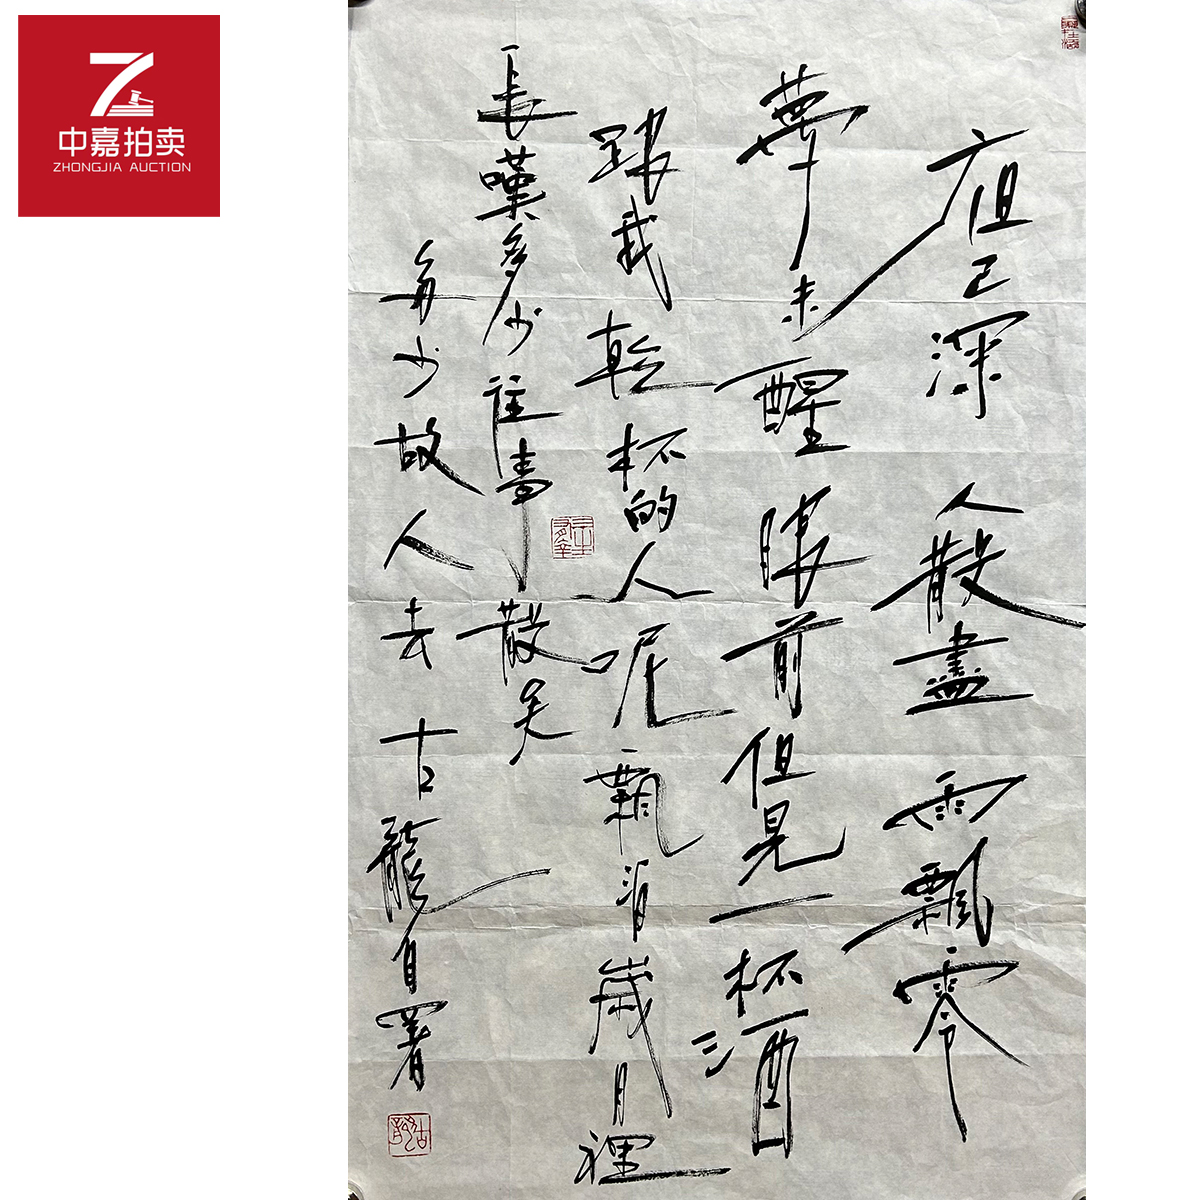 中嘉拍卖
ZHONGJIA AUCTION
夜已深 人散盡 雨飄零
夢未醒 眼前但見一杯酒
跟我乾杯的人呢 飄消歲月裡
長嘆多少往事散矣
少故人去 古龍自署